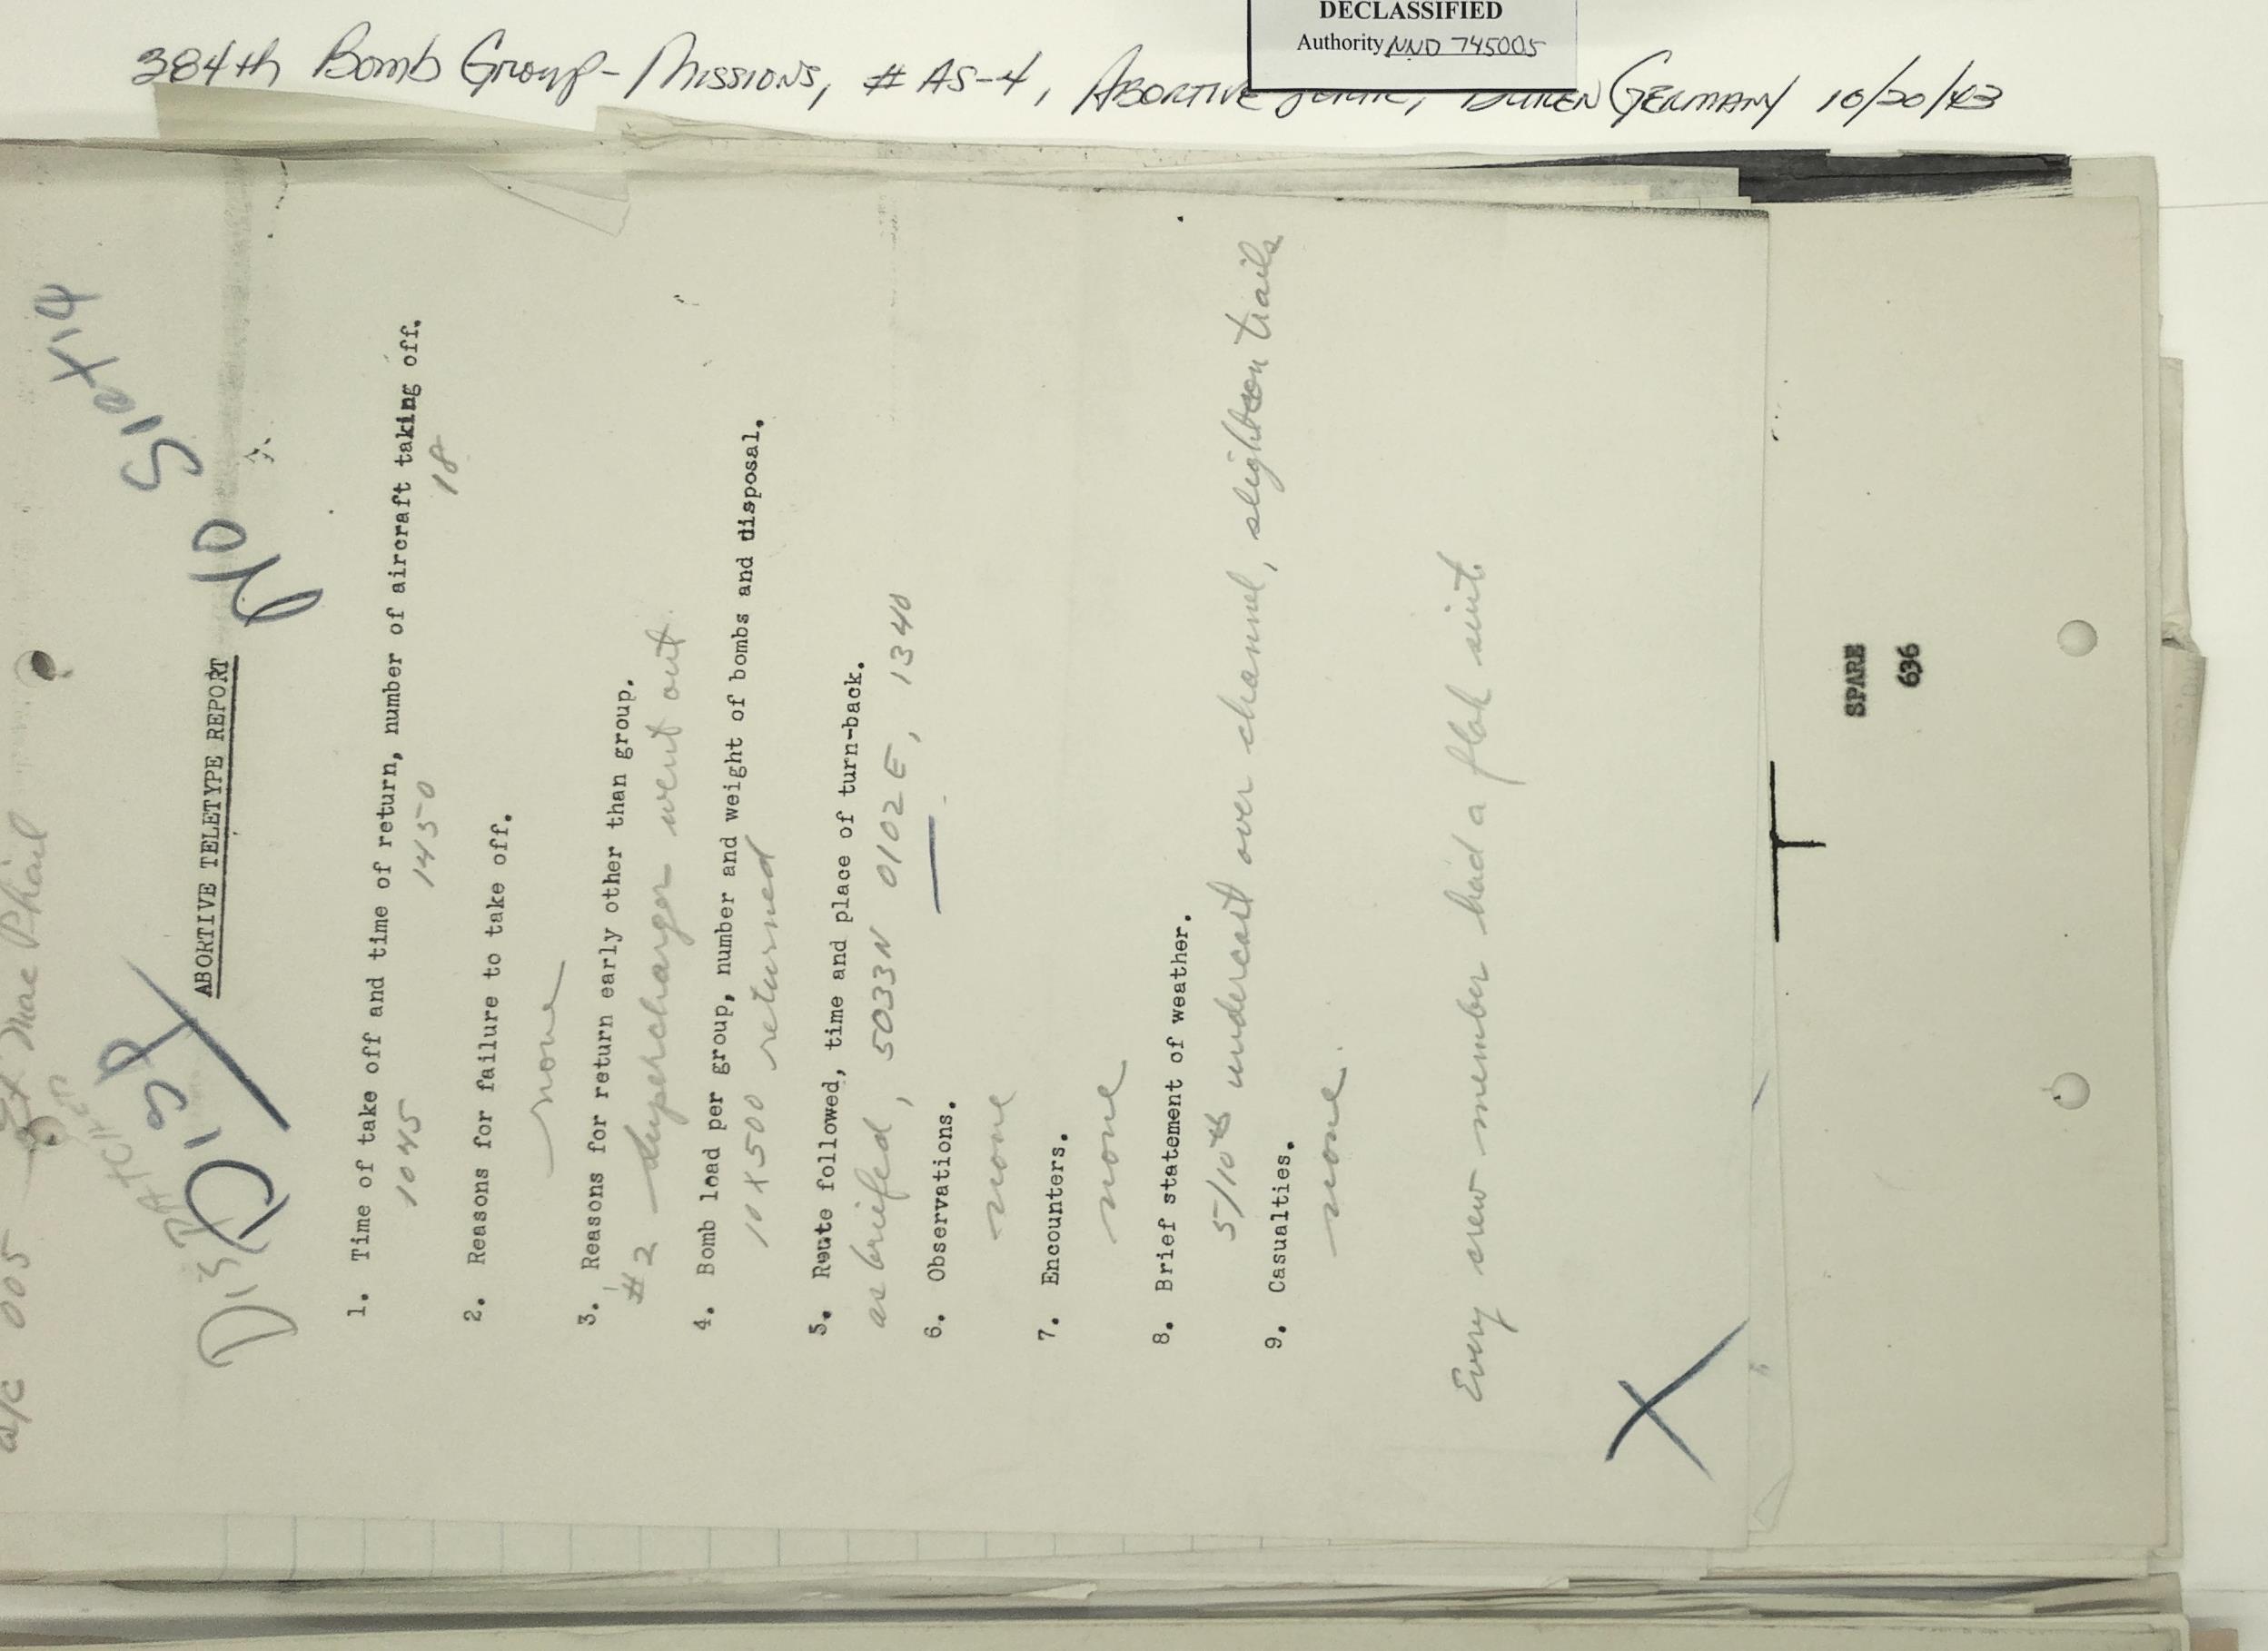 DECLASSIFIED
Authority NND 745005
384th Bomb Group - Missions, # AS-4, Abortive Germany 10/20/43
A/C 005 Mac Phail
DISP
No
ABORTIVE TELETYPE REPORT
1. Time of take off and time of return, number of aircraft taking off.
1045 1450 18
2. Reasons for failure to take off.
none
3. Reasons for return early other than group.
#2 supercharger went out.
4. Bomb load per group, number and weight of bombs and disposal.
10 x 500 returned
5. Route followed, time and place of turn-back.
as briefed, 5033N 0102E, 1340
6. Observations.
none
7. Encounters.
none
8. Brief statement of weather.
5/10ths undercast over channel, slight con trails
9. Casualties.
none.
Every crew member had a flak suit.
SPARE
636